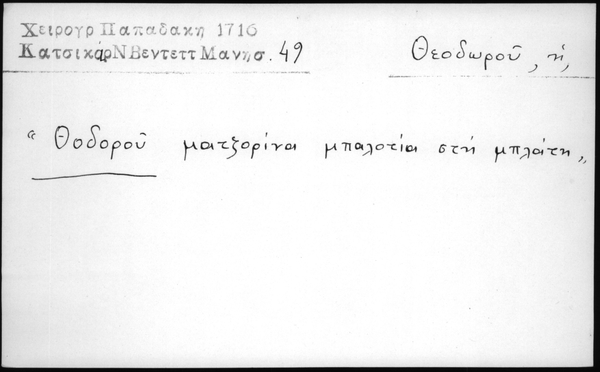 Χειρογρ Παπαδακη 1716
Κατσικάρ Ν Βεντεττ Μανησ. 49
Θεοδωροῦ, ἡ,
“ Θοδοροῦ ματζορίνα μπαλοτία στή μπλάτη „